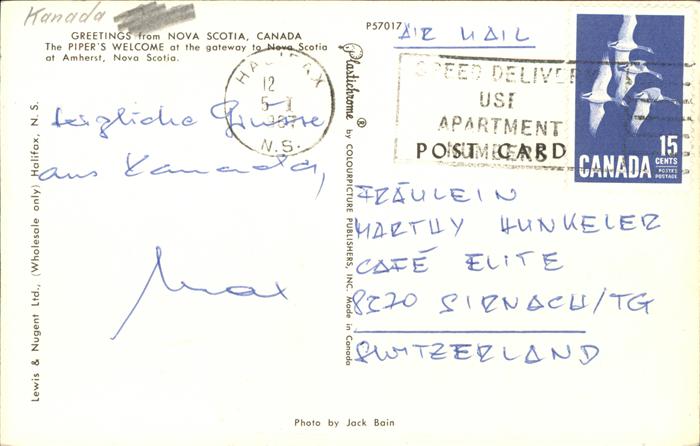 Kanada
GREETINGS from NOVA SCOTIA, CANADA
The PIPER'S WELCOME at the gateway to Nova Scotia
at Amherst, Nova Scotia.
herzliche Grüsse
aus Kanada,
Max
Lewis & Nugent Ltd., (Wholesale only) Halifax, N. S.
Plastichrome ® by COLOURPICTURE PUBLISHERS, INC. Made in Canada
P57017
AIR MAIL
HALIFAX
12
N.S.
SPEED DELIVERY
USE
APARTMENT
NUMBERS
POST CARD
15
CENTS
CANADA
POSTES
POSTAGE
FRÄULEIN
MARTHY HUNKELER
CAFÉ ELITE
8370 SIRNACH/TG
SWITZERLAND
Photo by Jack Bain